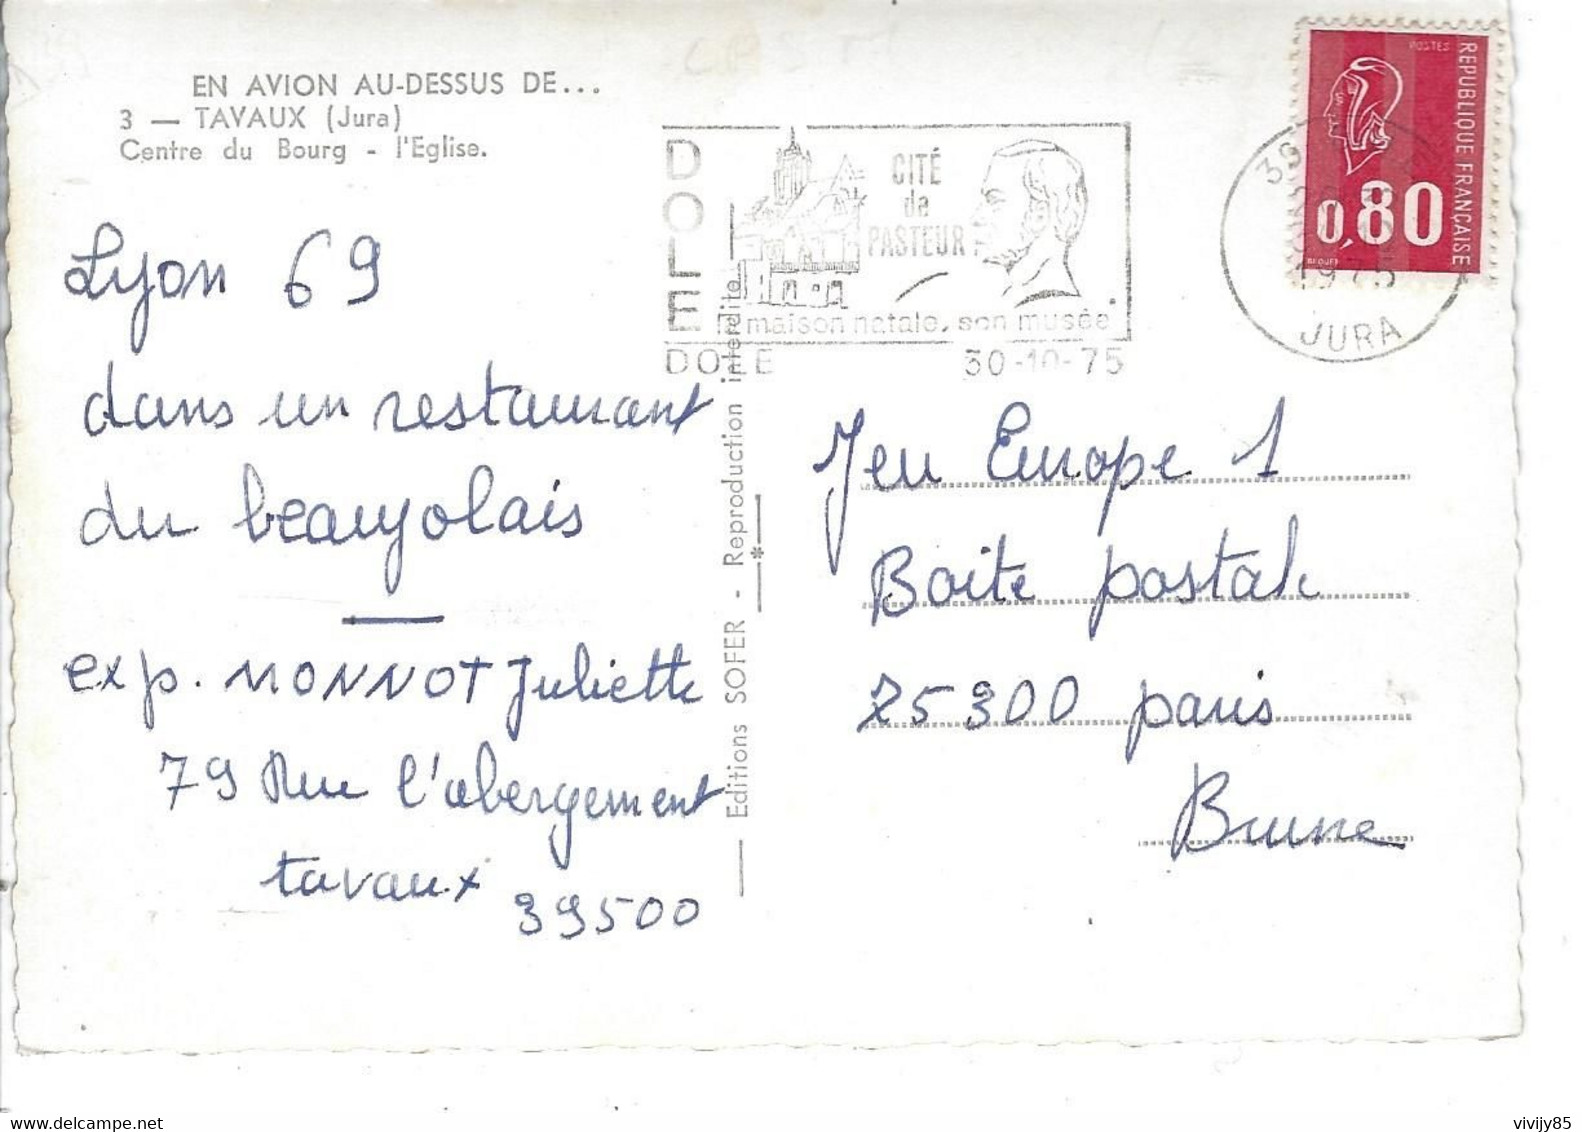 EN AVION AU-DESSUS DE...
3 — TAVAUX (Jura)
Centre du Bourg - l'Eglise.
Lyon 69
dans un restaurant
du beaujolais
exp. MONNOT Juliette
79 Rue l'abergement
tavaux
39500
Editions SOFER - Reproduction interdite
DOLE
CITÉ
de
PASTEUR
maison natale, son musée
DOLE 30-10-75
POSTES
REPUBLIQUE FRANÇAISE
0,80
BEQUET
39
1975
JURA
Jeu Europe 1
Boite postale
75300 paris
Brune
vivijy85